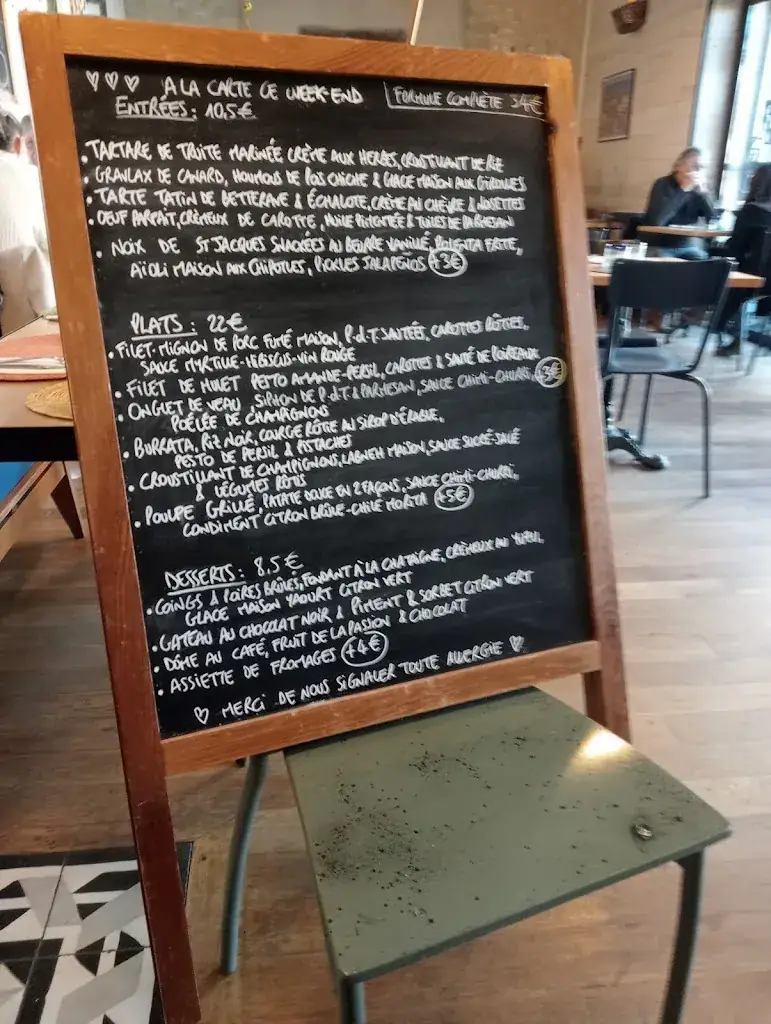 A LA CARTE CE WEEK-END
FORMULE COMPLÈTE 34€
ENTRÉES: 10,5€
• TARTARE DE TRUITE MARINÉE CRÈME AUX HERBES, CROUSTILLANT DE RIZ
• GRAVLAX DE CANARD, HOUMOUS DE POIS CHICHE & GLACE MAISON AUX GIROLLES
• TARTE TATIN DE BETTERAVE & ÉCHALOTE, CRÈME AU CHÈVRE & NOISETTES
• OEUF PARFAIT, CRÉMEUX DE CAROTTE, HUILE PIMENTÉE & TUILES DE PARMESAN
• NOIX DE ST JACQUES SNACKÉES AU BEURRE VANILLÉ, POLENTA FRITE,
AÏOLI MAISON AUX CHIPOTLES, PICKLES JALAPEÑOS +3€
PLATS: 22€
• FILET-MIGNON DE PORC FUMÉ MAISON, P.d.T. SAUTÉES, CAROTTES RÔTIES,
SAUCE MYRTILLE-HIBISCUS-VIN ROUGE
• FILET DE MULET PESTO AMANDE-PERSIL, CAROTTES & SAUTÉ DE POIREAUX
• ONGLET DE VEAU SIPHON DE P.d.T & PARMESAN, SAUCE CHIMI-CHURRI, +3€
POÊLÉE DE CHAMPIGNONS
• BURRATA, RIZ NOIR, COURGE RÔTIE AU SIROP D'ÉRABLE,
PESTO DE PERSIL & PISTACHES
• CROUSTILLANT DE CHAMPIGNONS, LABNEH MAISON, SAUCE SUCRÉ-SALÉ
& LÉGUMES RÔTIS
• POULPE GRILLÉ, PATATE DOUCE EN 2 FAÇONS, SAUCE CHIMI-CHURRI,
CONDIMENT CITRON BRÛLÉ-CHILE MORITA +5€
DESSERTS: 8,5€
• COINGS & POIRES BRÛLÉS, FONDANT À LA CHATAIGNE, CRÈMEUX AU
GLACE MAISON YAOURT CITRON VERT
• GATEAU AU CHOCOLAT NOIR & PIMENT & SORBET CITRON VERT
• DÔME AU CAFÉ, FRUIT DE LA PASSION & CHOCOLAT
• ASSIETTE DE FROMAGES +4€
MERCI DE NOUS SIGNALER TOUTE ALLERGIE